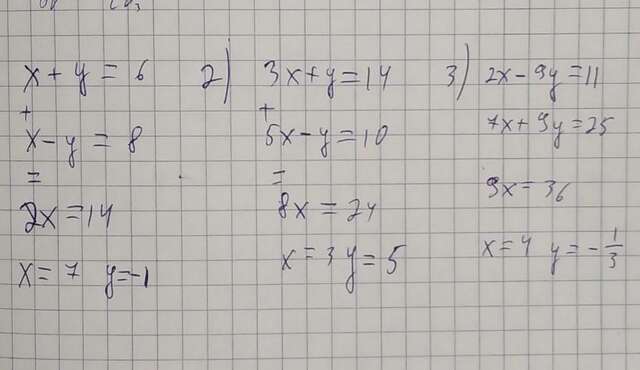 x + y = 6
+
x - y = 8
=
2x = 14
x = 7 y = -1
2)
3x + y = 14
+
5x - y = 10
=
8x = 24
x = 3 y = 5
3)
2x - 9y = 11
7x + 9y = 25
9x = 36
x = 4 y = - 1/3